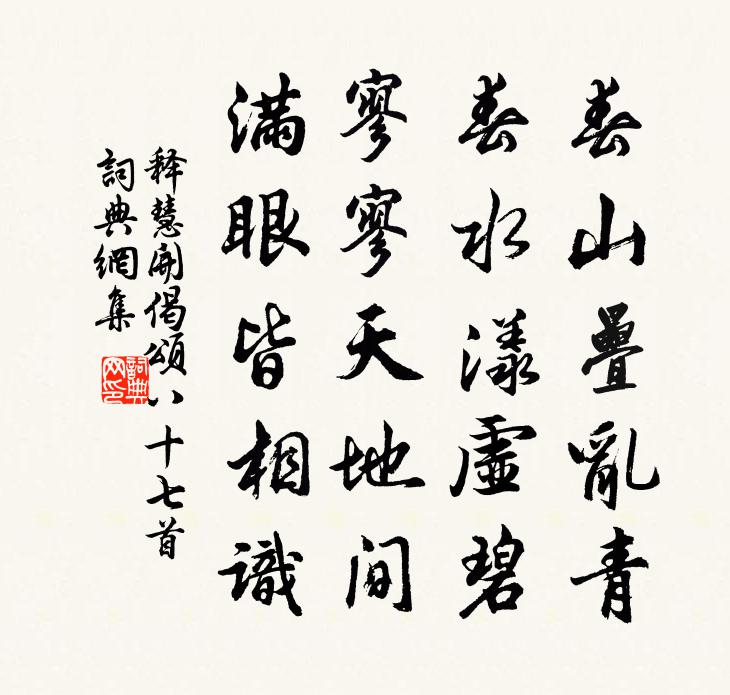 春山疊亂青
春水漾虛碧
寥寥天地間
滿眼皆相識
釋慧開偈頌八十七首
詞典網集
詞典網印